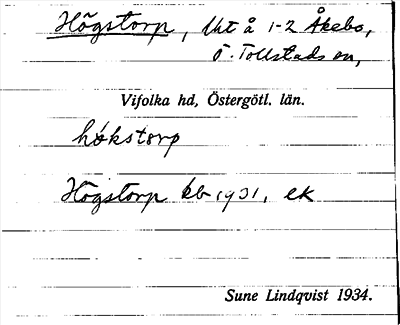 Högstorp, Uht å 1-2 Åkebo,
Ö. Tollstads sn,
Vifolka hd, Östergötl. län.
hökstorp
Högstorp kb 1931, ek
Sune Lindqvist 1934.